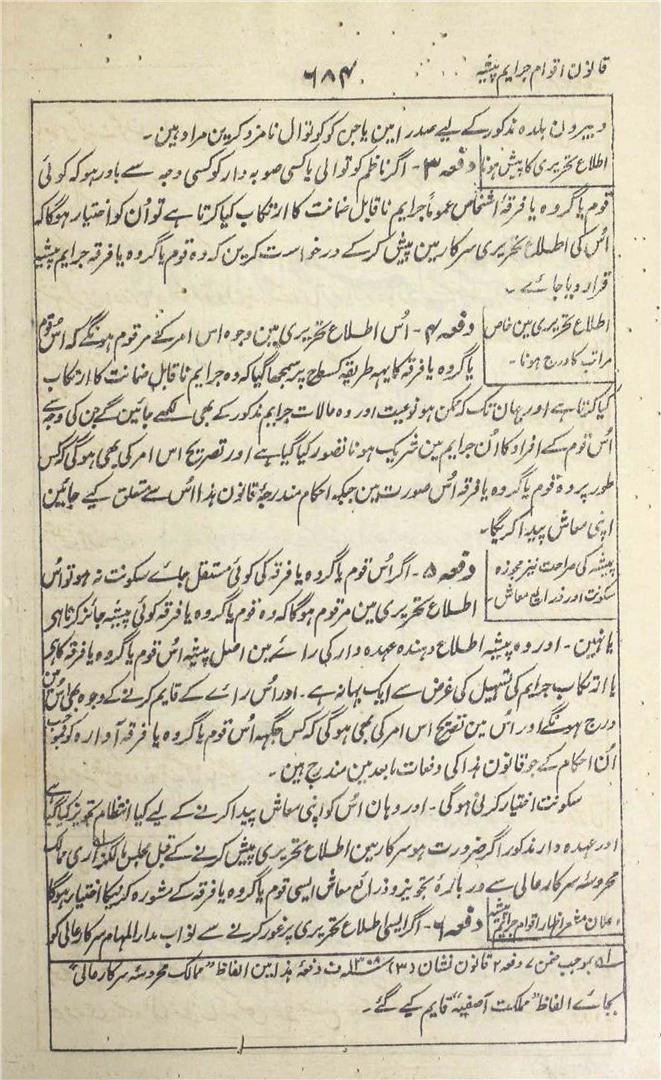 قانون اقوام جرایم پیشہ
۶۸۴
و بیرون بلدہ مذکور کے لیے صدر امین یا جن کو کوتوال نامزد کرین مراد ہین۔
اطلاع تحریری کا پیش ہونا
دفعہ ۳۔ اگر ناظم کوتوالی یا کسی صوبہ دار کو کسی وجہ سے باور ہو کہ کوئی
قوم یا گروہ یا فرقۂ اشخاص عموماً جرایم ناقابل ضمانت کا ارتکاب کیا کرتا ہے تو اُن کو اختیار ہوگا کہ
اُس کی اطلاع تحریری سرکار مین پیش کر کے درخواست کرین کہ وہ قوم یا گروہ یا فرقہ جرایم پیشہ
قرار دیا جائے۔
اطلاع تحریری مین خاص
مراتب کا درج ہونا۔
دفعہ ۴۔ اُس اطلاع تحریری مین وجوہ اس امر کے مرقوم ہونگے کہ اُس قوم
یا گروہ یا فرقہ کا یہہ طریقہ کس طرح پر سمجھا گیا کہ وہ جرایم ناقابل ضمانت کا ارتکاب
کیا کرتا ہے اور جہان تک کہ ممکن ہو نوعیت اور وہ حالات جرایم مذکور کے بھی لکھے جائین گے جن کی وجہ سے
اُس قوم کے افراد کا اُن جرایم مین شریک ہونا تصور کیا گیا ہے اور تصریح اس امر کی بھی ہوگی کہ کس
طور پر وہ قوم یا گروہ یا فرقہ اُس صورت مین جبکہ احکام مندرجۂ قانون ہذا اُس سے متعلق کیے جائین
اپنی معاش پیدا کریگا۔
پیشہ کی صراحت نیز مجوزہ
سکونت اور ذرایع معاش۔
دفعہ ۵۔ اگر اُس قوم یا گروہ یا فرقہ کی کوئی مستقل جائے سکونت نہ ہو تو اُس
اطلاع تحریری مین مرقوم ہوگا کہ وہ قوم یا گروہ یا فرقہ کوئی پیشہ جائز کرتا ہی
یا نہین۔ اور وہ پیشہ اطلاع دہندہ عہدہ دار کی رائے مین اصل پیشہ اُس قوم یا گروہ یا فرقہ کا ہی
یا ارتکاب جرایم کی تسہیل کی غرض سے ایک بہانہ ہے۔ اور اُس رائے کے قایم کرنے کے وجوہ بھی اُس مین
درج ہونگے اور اُس مین تصریح اس امر کی بھی ہوگی کہ کس جگہہ اُس قوم یا گروہ یا فرقہ آوارہ کو
اُن احکام کے جو قانون ہذا کی دفعات مابعد مین مندرج ہین۔
سکونت اختیار کرنی ہوگی۔ اور وہان اُس کو اپنی معاش پیدا کرنے کے لیے کیا انتظام تجویز کیا گیا ہے
اور عہدہ دار مذکور اگر ضرورت ہو سرکار مین اطلاع تحریری پیش کرنے کے قبل مجلس مالگذاری ممالک
محروسہ سرکار عالی سے در بارۂ تجویز و ذرائع معاش ایسی قوم یا گروہ یا فرقہ کے مشورہ کرنیکا اختیار ہوگا
اعلان مشعر اظہار اقوام جرایم پیشہ
دفعہ ۶۔ اگر ایسی اطلاع تحریری پر غور کرنے سے نواب مدارالمہام سرکار عالی کو
بموجب ضمن ۷ دفعہ ۲ قانون نشان (۳) ۱۳۰۸ ف دفعہ ہذا مین الفاظ ”ممالک محروسہ سرکار عالی“
بجائے الفاظ ”مملکت آصفیہ“ قایم کیے گئے۔